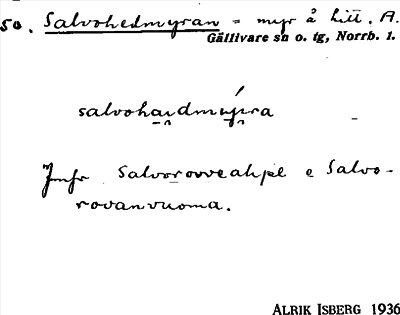 50. Salvohedmyran = myr å litt. A.
Gällivare sn o. tg, Norrb. l.
salvohaidmúi̯ra
Jmfr Salvorovveahpe e Salvo-
rovanvuoma.
ALRIK ISBERG 1936